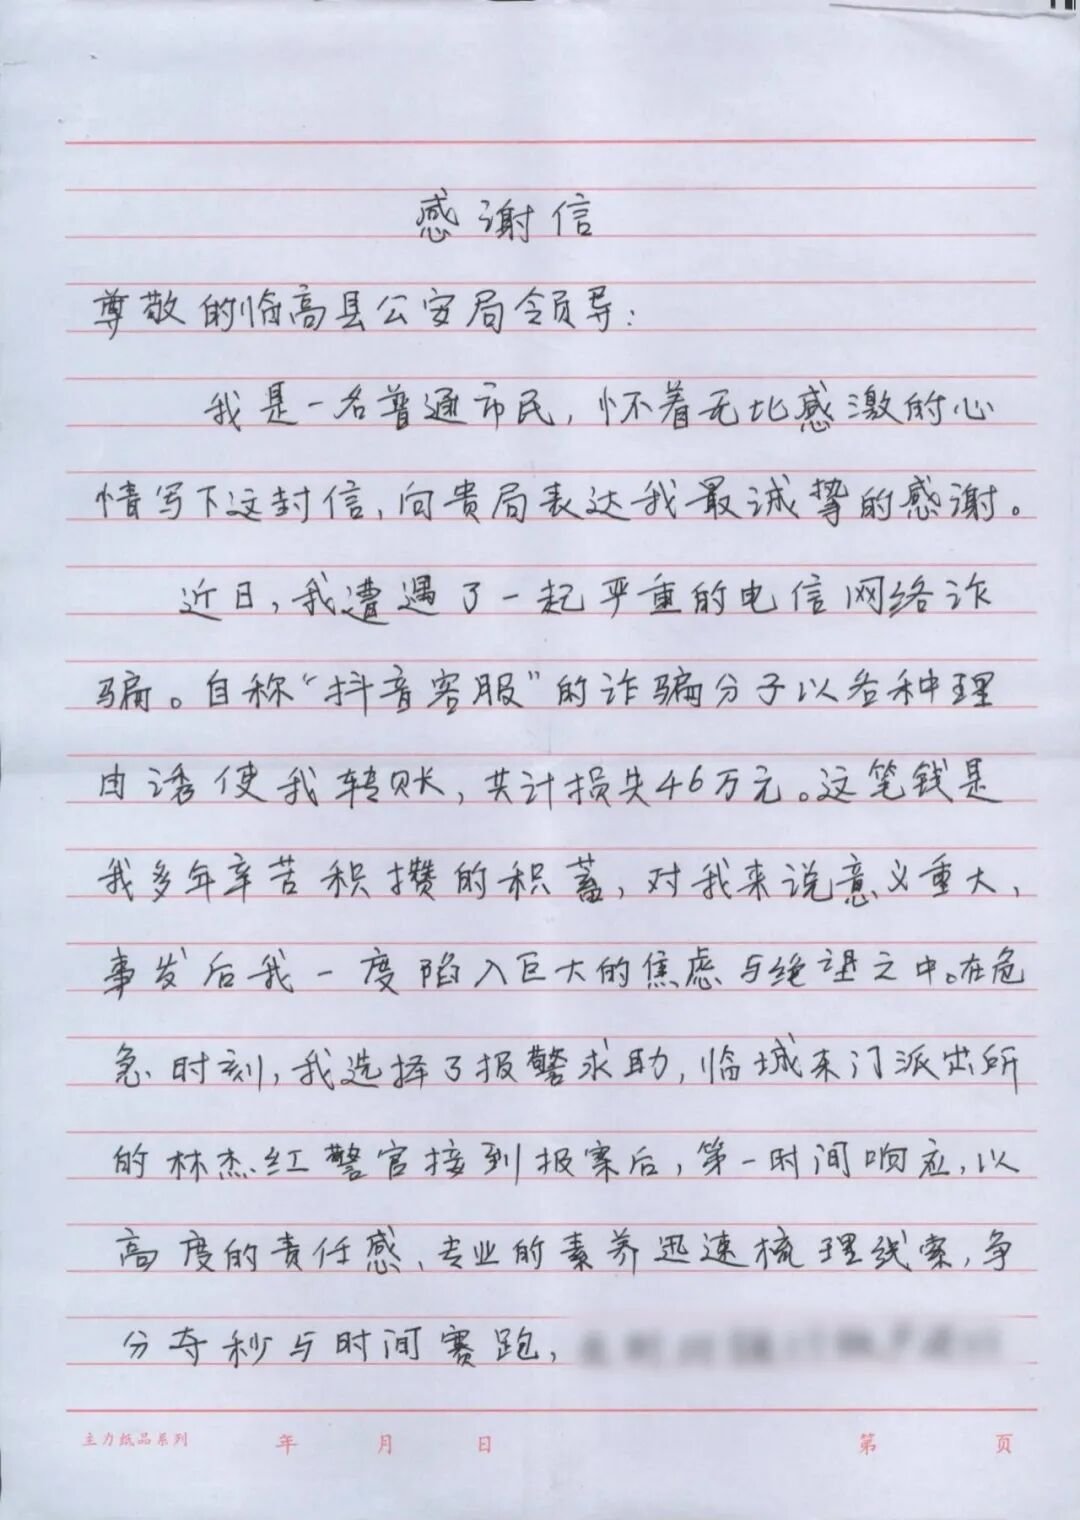 感谢信
尊敬的临高县公安局领导:
我是一名普通市民,怀着无比感激的心
情写下这封信,向贵局表达我最诚挚的感谢。
近日,我遭遇了一起严重的电信网络诈
骗。自称“抖音客服”的诈骗分子以各种理
由诱使我转账,共计损失46万元。这笔钱是
我多年辛苦积攒的积蓄,对我来说意义重大,
事发后我一度陷入巨大的焦虑与绝望之中。在危
急时刻,我选择了报警求助,临城来门派出所
的林杰红警官接到报案后,第一时间响应,以
高度的责任感、专业的素养迅速梳理线索,争
分夺秒与时间赛跑,
主力纸品系列 年 月 日 第 页